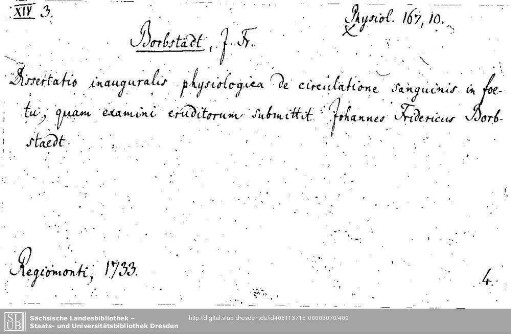 XIV 3.
Physiol. 167, 10.
Borbstädt, J. Fr.
Dissertatio inauguralis physiologica de circulatione sanguinis in foe-
tu, quam examini eruditorum submittit Johannes Fridericus Borb-
staedt.
Regiomonti, 1733.
4.
SLUB
Sächsische Landesbibliothek –
Staats- und Universitätsbibliothek Dresden